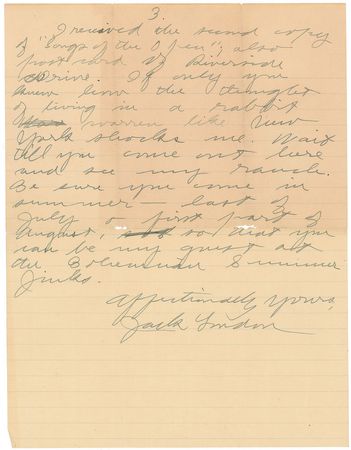 3.
I received the second copy
of "Songs of the Open"; also
post card of Riverside
Drive. If only you
knew how the thought
of living in a rabbit
warren like New
York shocks me. Wait
till you come out here
and see my ranch.
Be sure you come in
summer — last of
July or first part of
August, so that you
can be my guest at
the Bohemian Summer
Jinks.
Affectionately yours,
Jack London